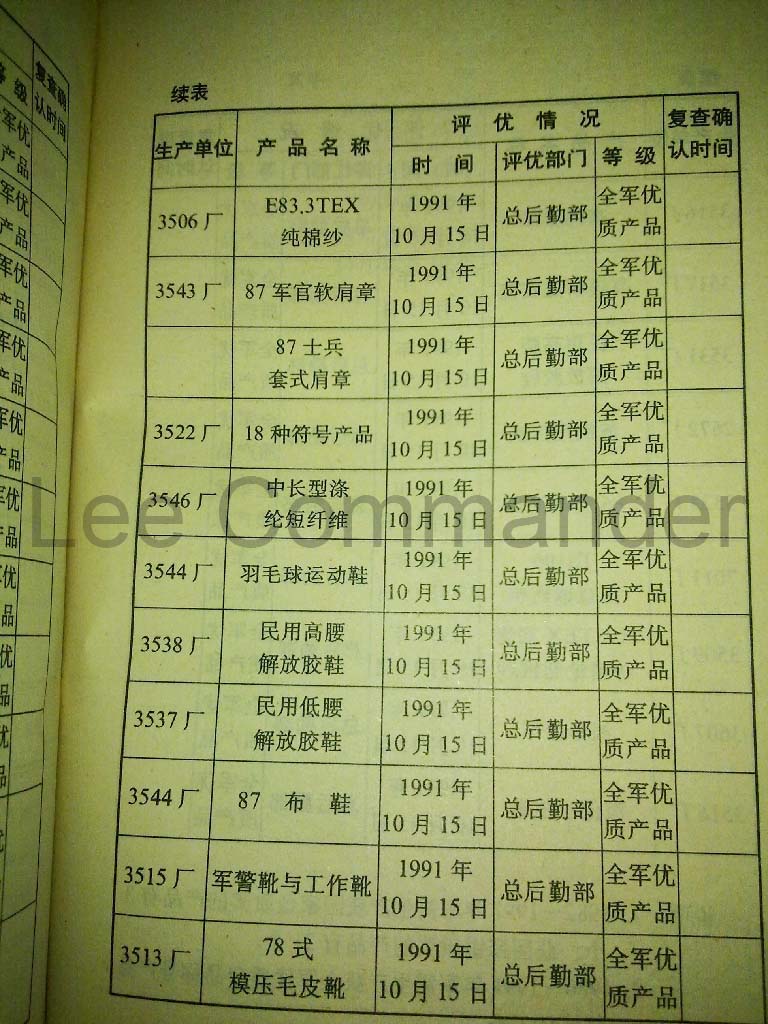 续表
生产单位 产品名称 评优情况 复查确认时间
时间 评优部门 等级
3506厂 E83.3TEX纯棉纱 1991年10月15日 总后勤部 全军优质产品
3543厂 87军官软肩章 1991年10月15日 总后勤部 全军优质产品
87士兵套式肩章 1991年10月15日 总后勤部 全军优质产品
3522厂 18种符号产品 1991年10月15日 总后勤部 全军优质产品
3546厂 中长型涤纶短纤维 1991年10月15日 总后勤部 全军优质产品
3544厂 羽毛球运动鞋 1991年10月15日 总后勤部 全军优质产品
3538厂 民用高腰解放胶鞋 1991年10月15日 总后勤部 全军优质产品
3537厂 民用低腰解放胶鞋 1991年10月15日 总后勤部 全军优质产品
3544厂 87布鞋 1991年10月15日 总后勤部 全军优质产品
3515厂 军警靴与工作靴 1991年10月15日 总后勤部 全军优质产品
3513厂 78式模压毛皮靴 1991年10月15日 总后勤部 全军优质产品
Lee Commander